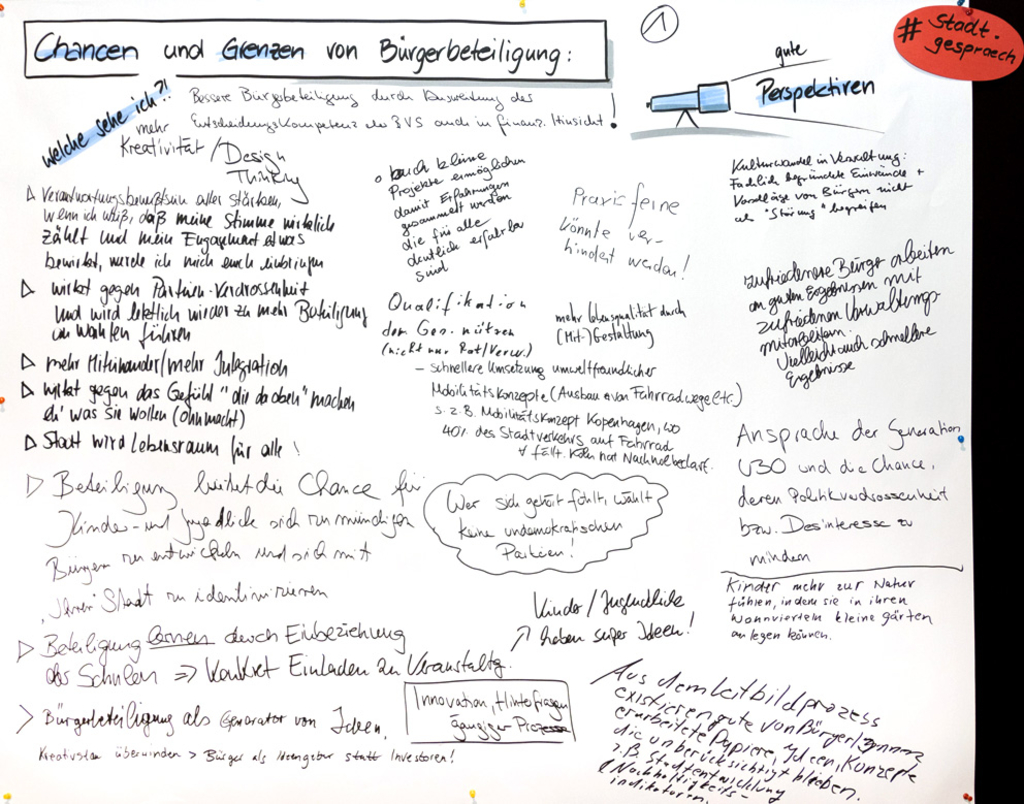 Chancen und Grenzen von Bürgerbeteiligung:
1
# Stadt.
gespraech
gute
Perspektiven
welche sehe ich?!
Bessere Bürgerbeteiligung durch Ausweitung des
Entscheidungskompetenz der BVS auch in finanz. Hinsicht!
mehr
Kreativität / Design
Thinking
▷ Verantwortungsbewußtsein aller stärken,
wenn ich weiß, daß meine Stimme wirklich
zählt und mein Engagement etwas
bewirkt, werde ich mich auch einbringen
▷ wirkt gegen Parteien-Verdrossenheit
und wird letztlich wieder zu mehr Beteiligung
an Wahlen führen
▷ mehr Miteinander/mehr Integration
▷ wirkt gegen das Gefühl "die da oben" machen
eh' was sie wollen (Ohnmacht)
▷ Stadt wird Lebensraum für alle!
▷ Beteiligung bietet die Chance für
Kinder- und Jugendliche sich zu mündigen
Bürgern zu entwickeln und sich mit
"Ihrer" Stadt zu
▷ Beteiligung lernen durch Einbeziehung
der Schulen => konkret Einladen zu Veranstaltg.
> Bürgerbeteiligung als Generator von Ideen.
überwinden > Bürger als Ideengeber statt Investoren!
o Auch kleine
Projekte ermöglichen
damit Erfahrungen
gesammelt werden
die für alle
deutlich erfahrbar
sind
Praxisferne
könnte ver-
hindert werden!
Qualifikation
der Ges. nützen
(nicht nur Rat/Verw.)
mehr Lebensqualität durch
(Mit-)Gestaltung
– schnellere Umsetzung umweltfreundlicher
Mobilitätskonzepte (Ausbau von Fahrradwege etc.)
s. z.B. Mobilitätskonzept Kopenhagen, wo
40% des Stadtverkehrs auf Fahrrad
fällt. Köln hat Nachholbedarf.
Wer sich gehört fühlt, wählt
keine undemokratischen
Parteien!
Kinder / Jugendliche
haben super Ideen!
Innovation, Hinterfragen
gängiger Prozesse
Kulturwandel in Verwaltung:
Fachlich begründete Einwände +
Vorschläge von Bürgern nicht
als "Störung" begreifen
zufriedenere Bürger arbeiten
an guten Ergebnissen mit
zufriedenen Verwaltungs-
mitarbeitern.
Vielleicht auch schnellere
Ergebnisse
Ansprache der Generation
U30 und die Chance,
deren Politikverdrossenheit
bzw. Desinteresse zu
mindern
Kinder mehr zur Natur
führen, indem sie in ihren
Wohnvierteln kleine gärten
anlegen können.
Aus dem Leitbildprozess
existieren gute von Bürger/innen
erarbeitete Papiere, Ideen, Konzepte
die unberücksichtigt blieben.
z.B. Stadtentwicklung
Nachhaltigkeits-
indikatoren.